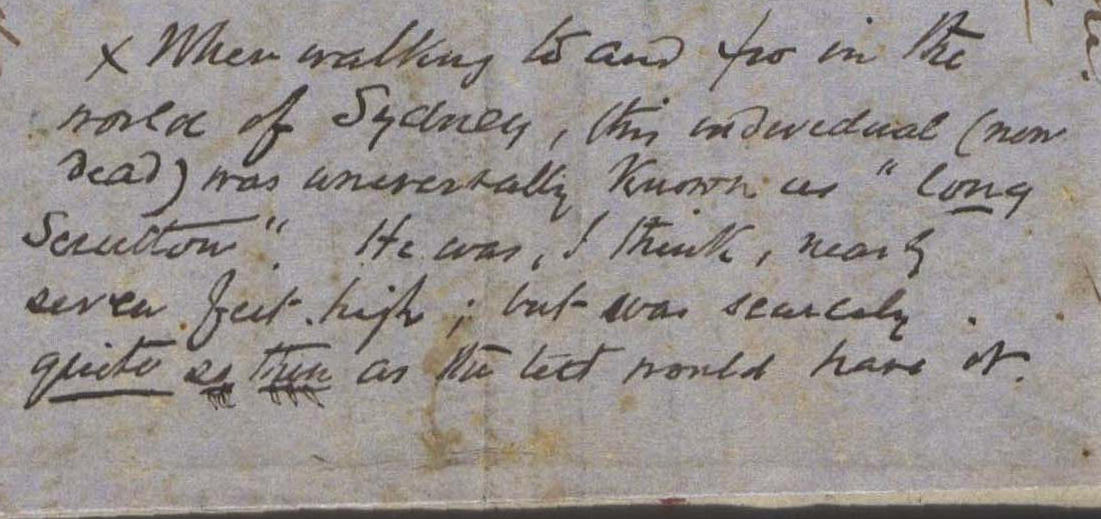 x When walking to and fro in the
world of Sydney, this individual (now
dead) was universally known as "long
Scrutton". He was, I think, nearly
seven feet high; but was scarcely
quite so thin as the text would have it.